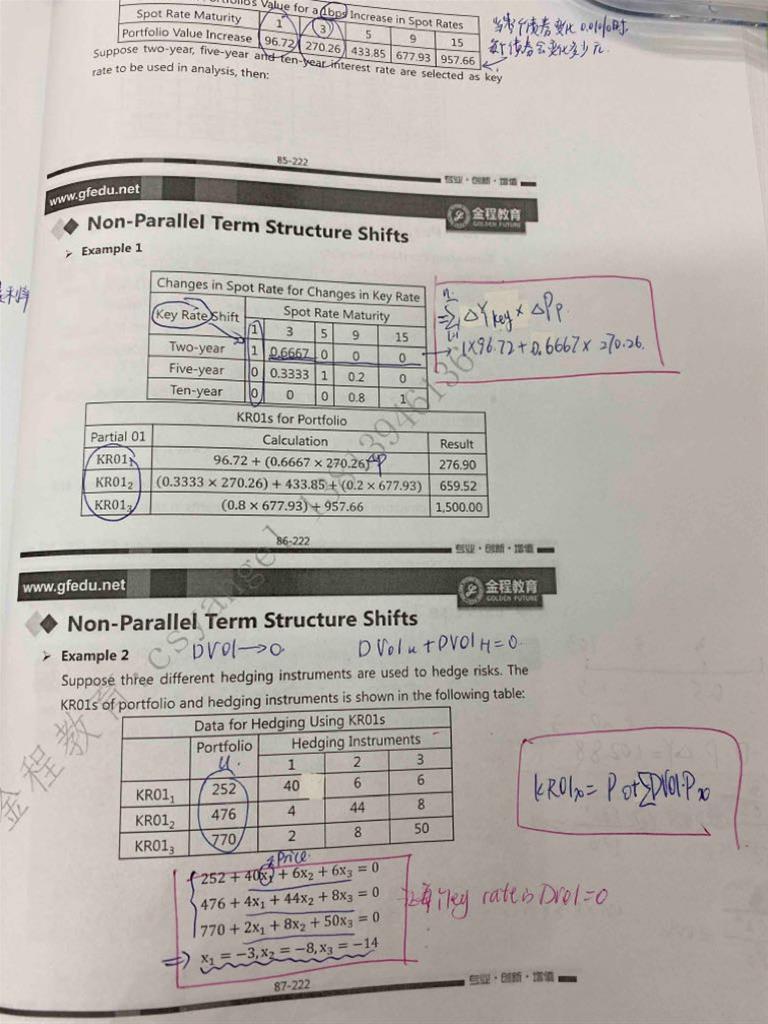 Value for a 1bps Increase in Spot Rates
Spot Rate Maturity 1 3 5 9 15
Portfolio Value Increase 96.72 270.26 433.85 677.93 957.66
Suppose two-year, five-year and ten-year interest rate are selected as key
rate to be used in analysis, then:
85-222
专业·创新·增值
www.gfedu.net
金程教育
GOLDEN FUTURE
Non-Parallel Term Structure Shifts
Example 1
Changes in Spot Rate for Changes in Key Rate
Key Rate Shift Spot Rate Maturity
1 3 5 9 15
Two-year 1 0.6667 0 0 0
Five-year 0 0.3333 1 0.2 0
Ten-year 0 0 0 0.8 1
1×96.72+0.6667×270.26
KR01s for Portfolio
Partial 01 Calculation Result
KR01₁ 96.72 + (0.6667 × 270.26) 276.90
KR01₂ (0.3333 × 270.26) + 433.85 + (0.2 × 677.93) 659.52
KR01₃ (0.8 × 677.93) + 957.66 1,500.00
86-222
专业·创新·增值
www.gfedu.net
金程教育
GOLDEN FUTURE
Non-Parallel Term Structure Shifts
Example 2
DV01→0
Suppose three different hedging instruments are used to hedge risks. The
KR01s of portfolio and hedging instruments is shown in the following table:
Data for Hedging Using KR01s
Portfolio Hedging Instruments
1 2 3
KR01₁ 252 40 6 6
KR01₂ 476 4 44 8
KR01₃ 770 2 8 50
Price
252 + 40x₁ + 6x₂ + 6x₃ = 0
476 + 4x₁ + 44x₂ + 8x₃ = 0
770 + 2x₁ + 8x₂ + 50x₃ = 0
⇒ x₁ = −3, x₂ = −8, x₃ = −14
key rate DV01=0
87-222
专业·创新·增值
金程教育